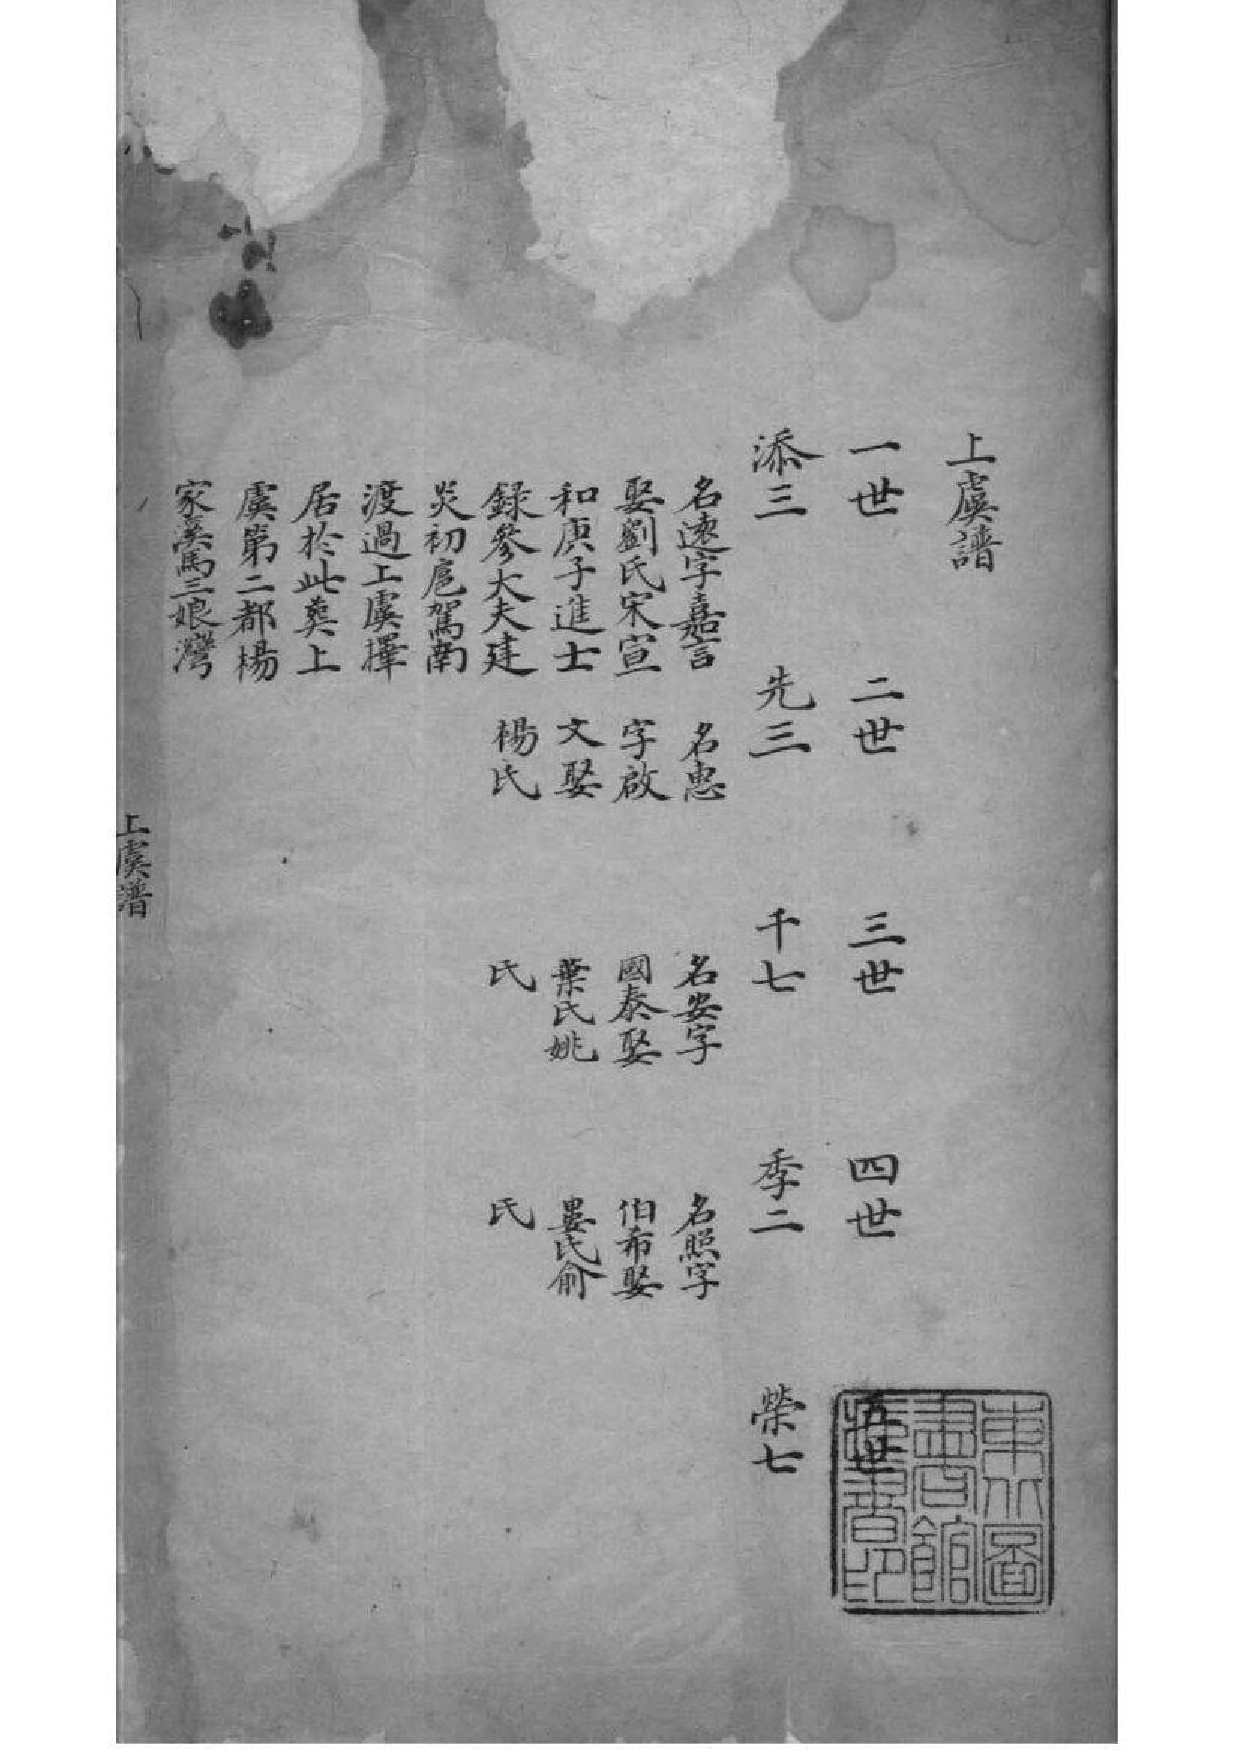 上虞譜
一世
二世
三世
四世
五世
添三
先三
千七
季二
榮七
名遠字嘉言
娶劉氏宋宣
和庚子進士
錄參大夫建
炎初扈駕南
渡過上虞擇
居於此葬上
虞第二都楊
家溪馮三娘灣
名忠
字啟
文娶
楊氏
名安字
國泰娶
葉氏姚
氏
名照字
伯希娶
婁氏俞
氏
上虞譜
東北圖
書館
書印